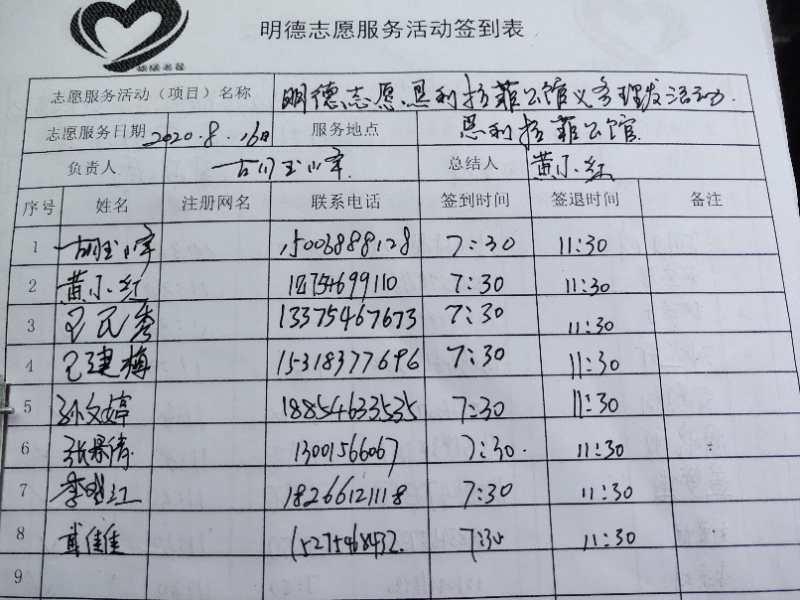 明德志愿服务活动签到表
志愿服务活动（项目）名称 明德志愿恩利拉菲公馆义务理发活动.
志愿服务日期 2020.8.16日 服务地点 恩利拉菲公馆
负责人 胡玉军 总结人 黄小红
序号 姓名 注册网名 联系电话 签到时间 签退时间 备注
1 胡玉军 15006888128 7:30 11:30
2 黄小红 7:30 11:30
3 王民秀 13375467673 7:30 11:30
4 王建梅 15318377696 7:30 11:30
5 孙文婷 18854633535 7:30 11:30
6 张景倩 13001566067 7:30. 11:30
7 李 红 18266121118 7:30 11:30
8 维维 15275468432. 7:30 11:30
9